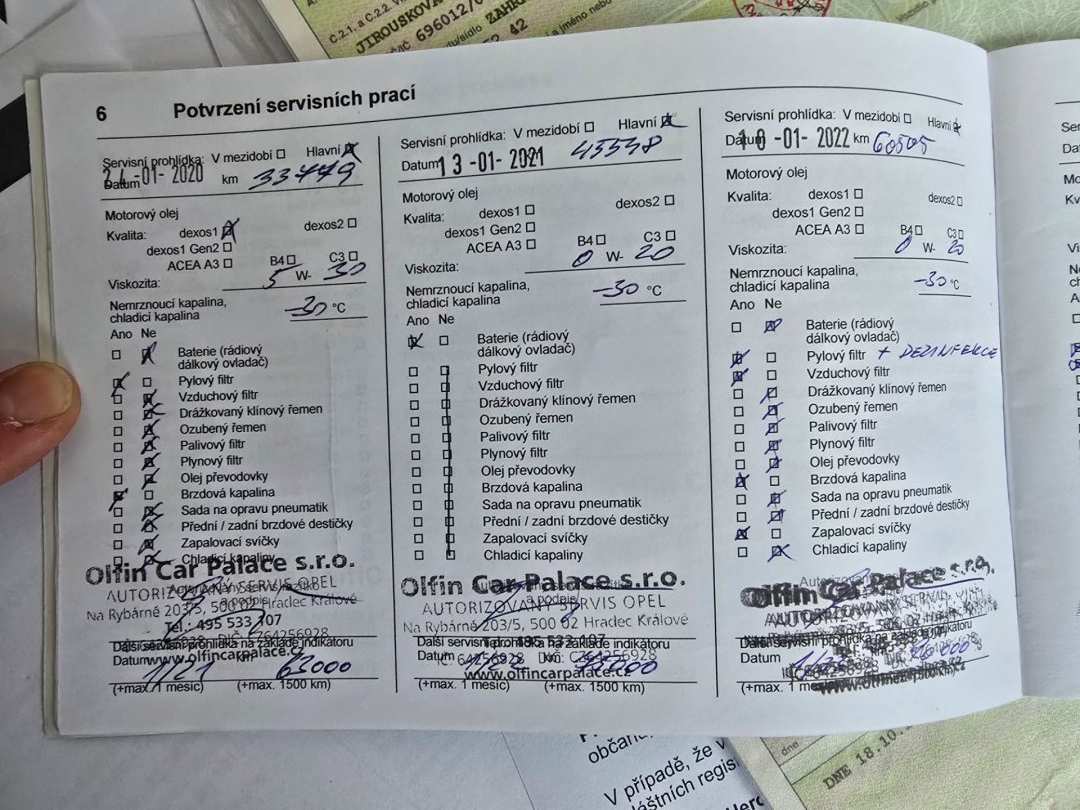 C.2.1. a C.2.2.
JIROUSKOVA
696012/0
ZAHR
42
6
Potvrzení servisních prací
Servisní prohlídka: V mezidobí Hlavní
Datum 24 -01- 2020 km 33779
Motorový olej
Kvalita: dexos1 dexos2
dexos1 Gen2
ACEA A3 B4 C3
Viskozita: 5 W- 30
Nemrznoucí kapalina,
chladicí kapalina -30 °C
Ano Ne
Baterie (rádiový
dálkový ovladač)
Pylový filtr
Vzduchový filtr
Drážkovaný klínový řemen
Ozubený řemen
Palivový filtr
Plynový filtr
Olej převodovky
Brzdová kapalina
Sada na opravu pneumatik
Přední / zadní brzdové destičky
Zapalovací svíčky
Chladicí kapaliny
Olfin Car Palace s.r.o.
AUTORIZOVANÝ SERVIS OPEL
Na Rybárně 203/5, 500 02 Hradec Králové
Tel.: 495 533 107
Další servisní prohlídka na základě indikátoru
Datum 1/21 km 63000
www.olfincarpalace.cz
(+max. 1 měsíc) (+max. 1500 km)
Servisní prohlídka: V mezidobí Hlavní
Datum 13 -01- 2021 45538
Motorový olej
Kvalita: dexos1 dexos2
dexos1 Gen2
ACEA A3 B4 C3
Viskozita: 0 W- 20
Nemrznoucí kapalina,
chladicí kapalina -30 °C
Ano Ne
Baterie (rádiový
dálkový ovladač)
Pylový filtr
Vzduchový filtr
Drážkovaný klínový řemen
Ozubený řemen
Palivový filtr
Plynový filtr
Olej převodovky
Brzdová kapalina
Sada na opravu pneumatik
Přední / zadní brzdové destičky
Zapalovací svíčky
Chladicí kapaliny
Olfin Car Palace s.r.o.
a podpis
AUTORIZOVANÝ SERVIS OPEL
Na Rybárně 203/5, 500 02 Hradec Králové
Další servisní prohlídka 495 533 107
Datum
www.olfincarpalace.cz
(+max. 1 měsíc) (+max. 1500 km)
Servisní prohlídka: V mezidobí Hlavní
Datum -01- 2022 km 60505
Motorový olej
Kvalita: dexos1 dexos2
dexos1 Gen2
ACEA A3 B4 C3
Viskozita: 0 W- 20
Nemrznoucí kapalina,
chladicí kapalina -30 °C
Ano Ne
Baterie (rádiový
dálkový ovladač)
Pylový filtr + DEZINFEKCE
Vzduchový filtr
Drážkovaný klínový řemen
Ozubený řemen
Palivový filtr
Plynový filtr
Olej převodovky
Brzdová kapalina
Sada na opravu pneumatik
Přední / zadní brzdové destičky
Zapalovací svíčky
Chladicí kapaliny
Olfin Car Palace s.r.o.
Datum
občan
V případě, že v
dne
DNE 18.10.